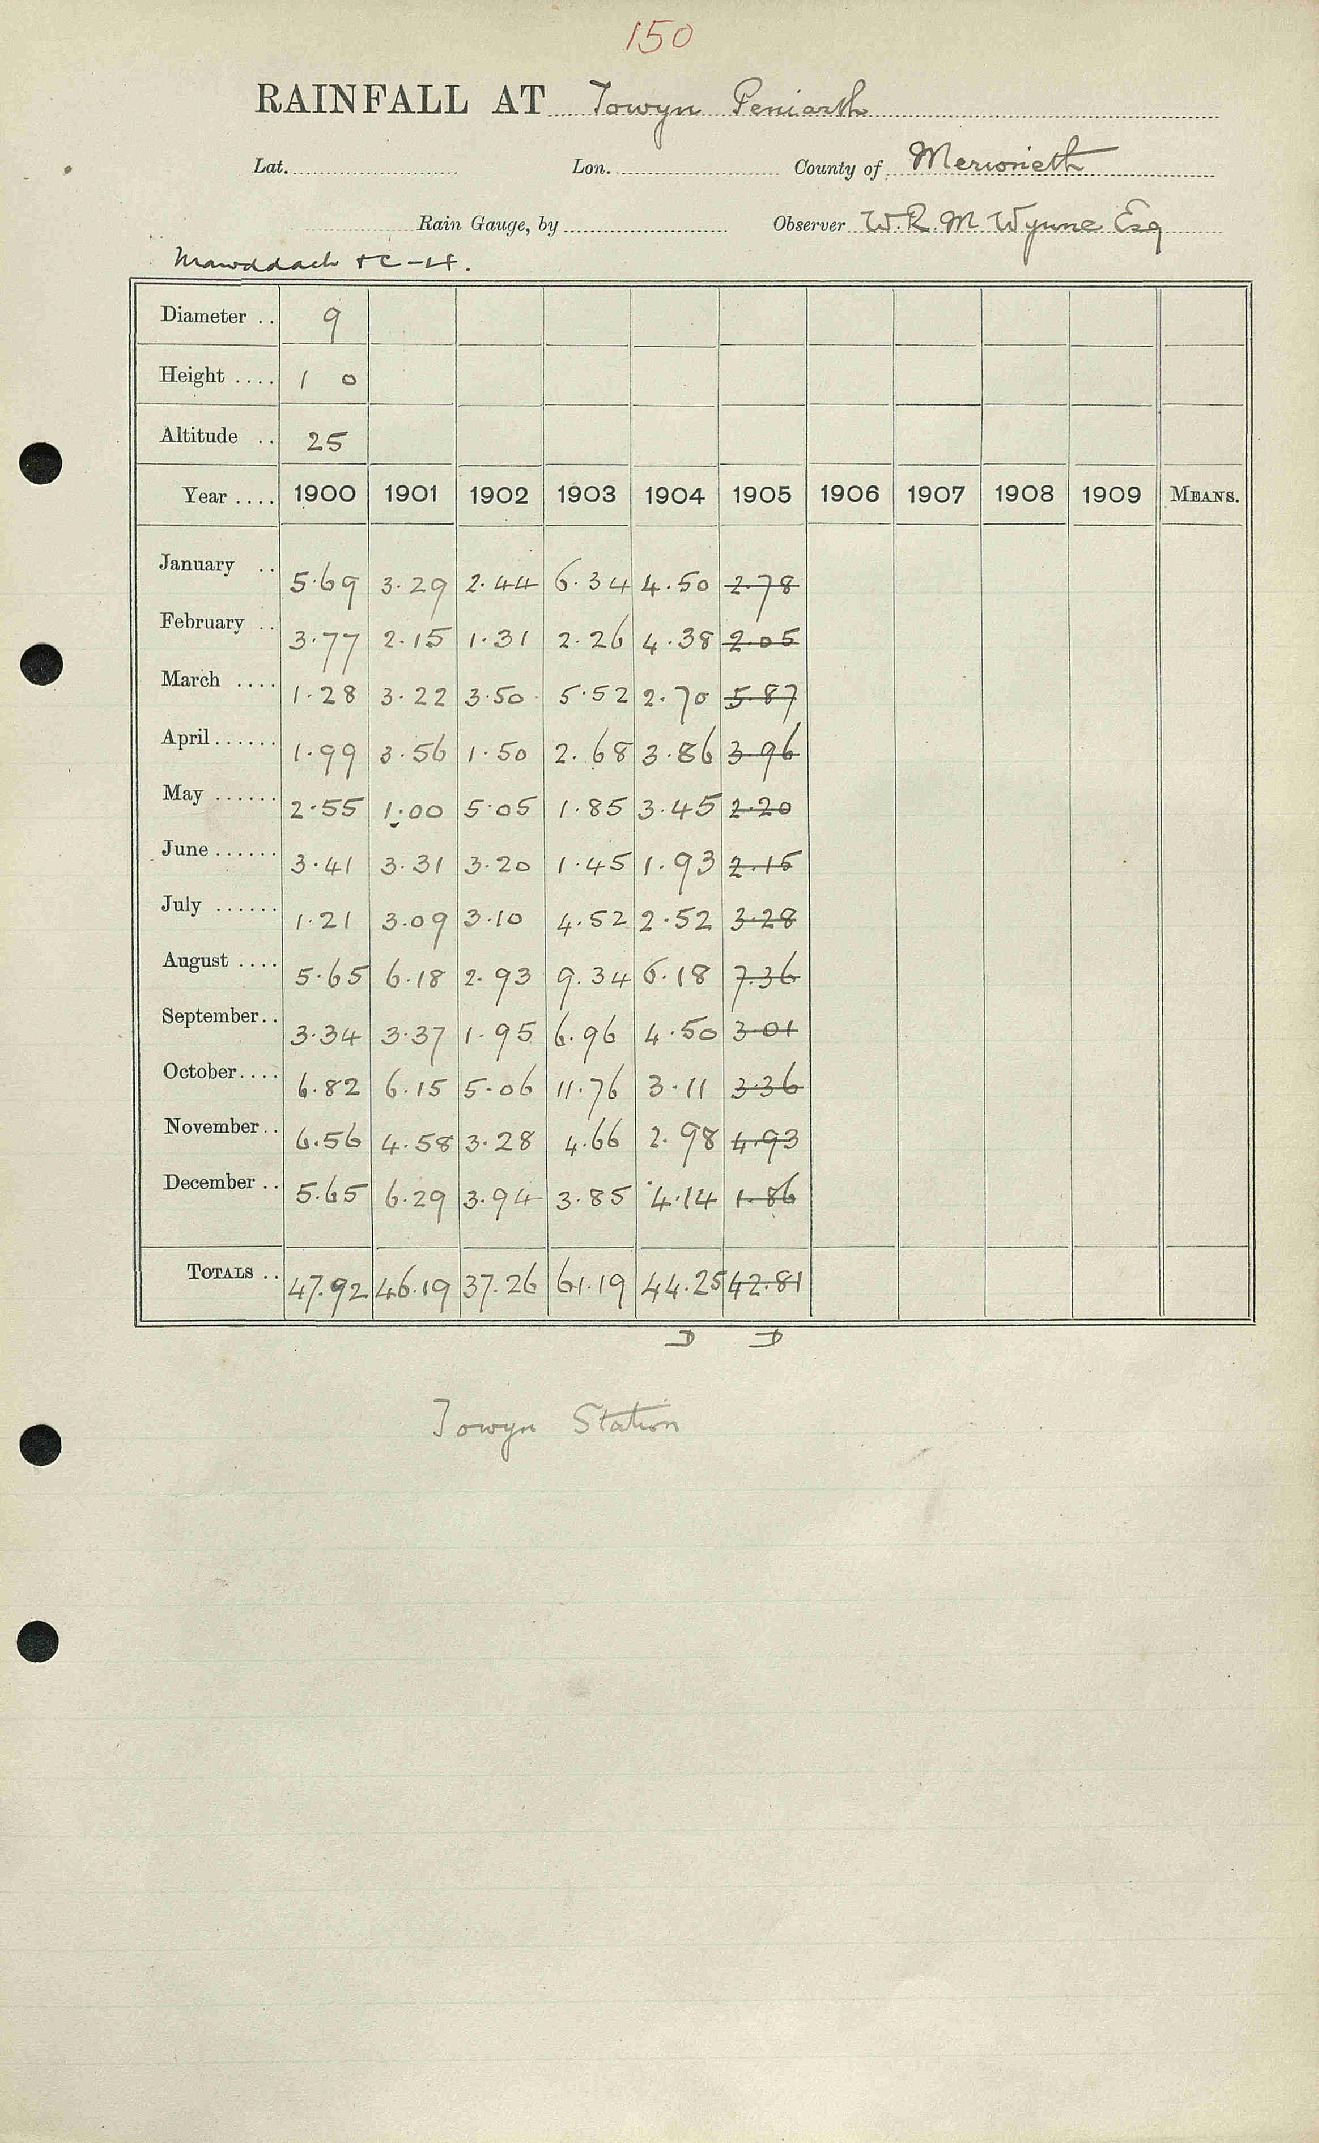 150
RAINFALL AT Towyn Peniarth
Lat. Lon. County of Merioneth
Rain Gauge, by Observer W. R. M. Wynne Esq
Mawddach
Diameter .. 9
Height .... 1 0
Altitude .. 25
Year .... 1900 1901 1902 1903 1904 1905 1906 1907 1908 1909 MEANS.
January .. 5.69 3.29 2.44 6.34 4.50 2.78
February .. 3.77 2.15 1.31 2.26 4.38 2.05
March .... 1.28 3.22 3.50 5.52 2.70 5.87
April...... 1.99 3.56 1.50 2.68 3.86 3.96
May ...... 2.55 1.00 5.05 1.85 3.45 2.20
June...... 3.41 3.31 3.20 1.45 1.93 2.15
July ...... 1.21 3.09 3.10 4.52 2.52 3.28
August .... 5.65 6.18 2.93 9.34 6.18 7.36
September.. 3.34 3.37 1.95 6.96 4.50 3.01
October.... 6.82 6.15 5.06 11.76 3.11 3.36
November.. 6.56 4.58 3.28 4.66 2.98 4.93
December .. 5.65 6.29 3.94 3.85 4.14 1.86
TOTALS .. 47.92 46.19 37.26 61.19 44.25 42.81
D D
Towyn Station